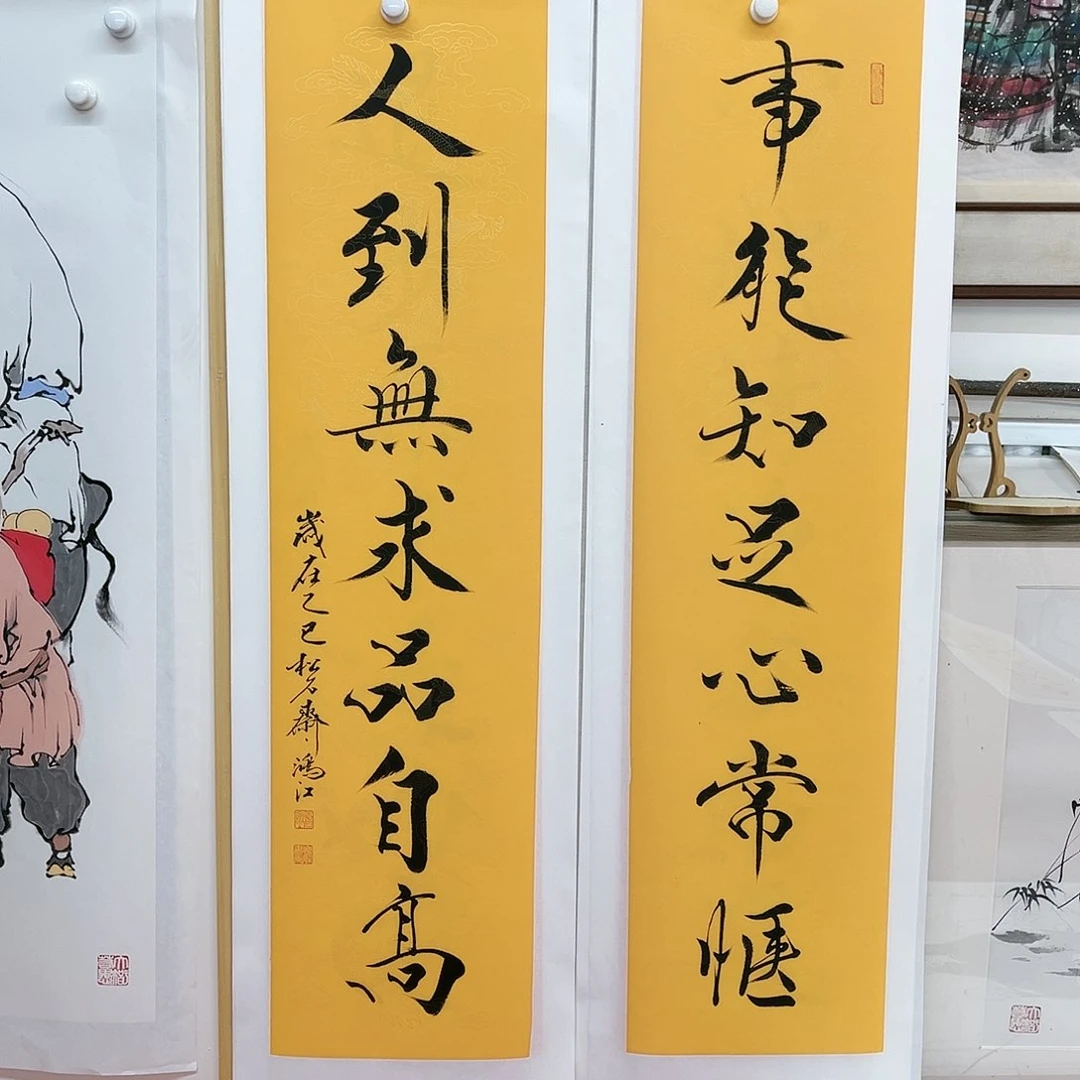 事能知足心常惬
人到無求品自高
歲在乙巳松石齋鴻江